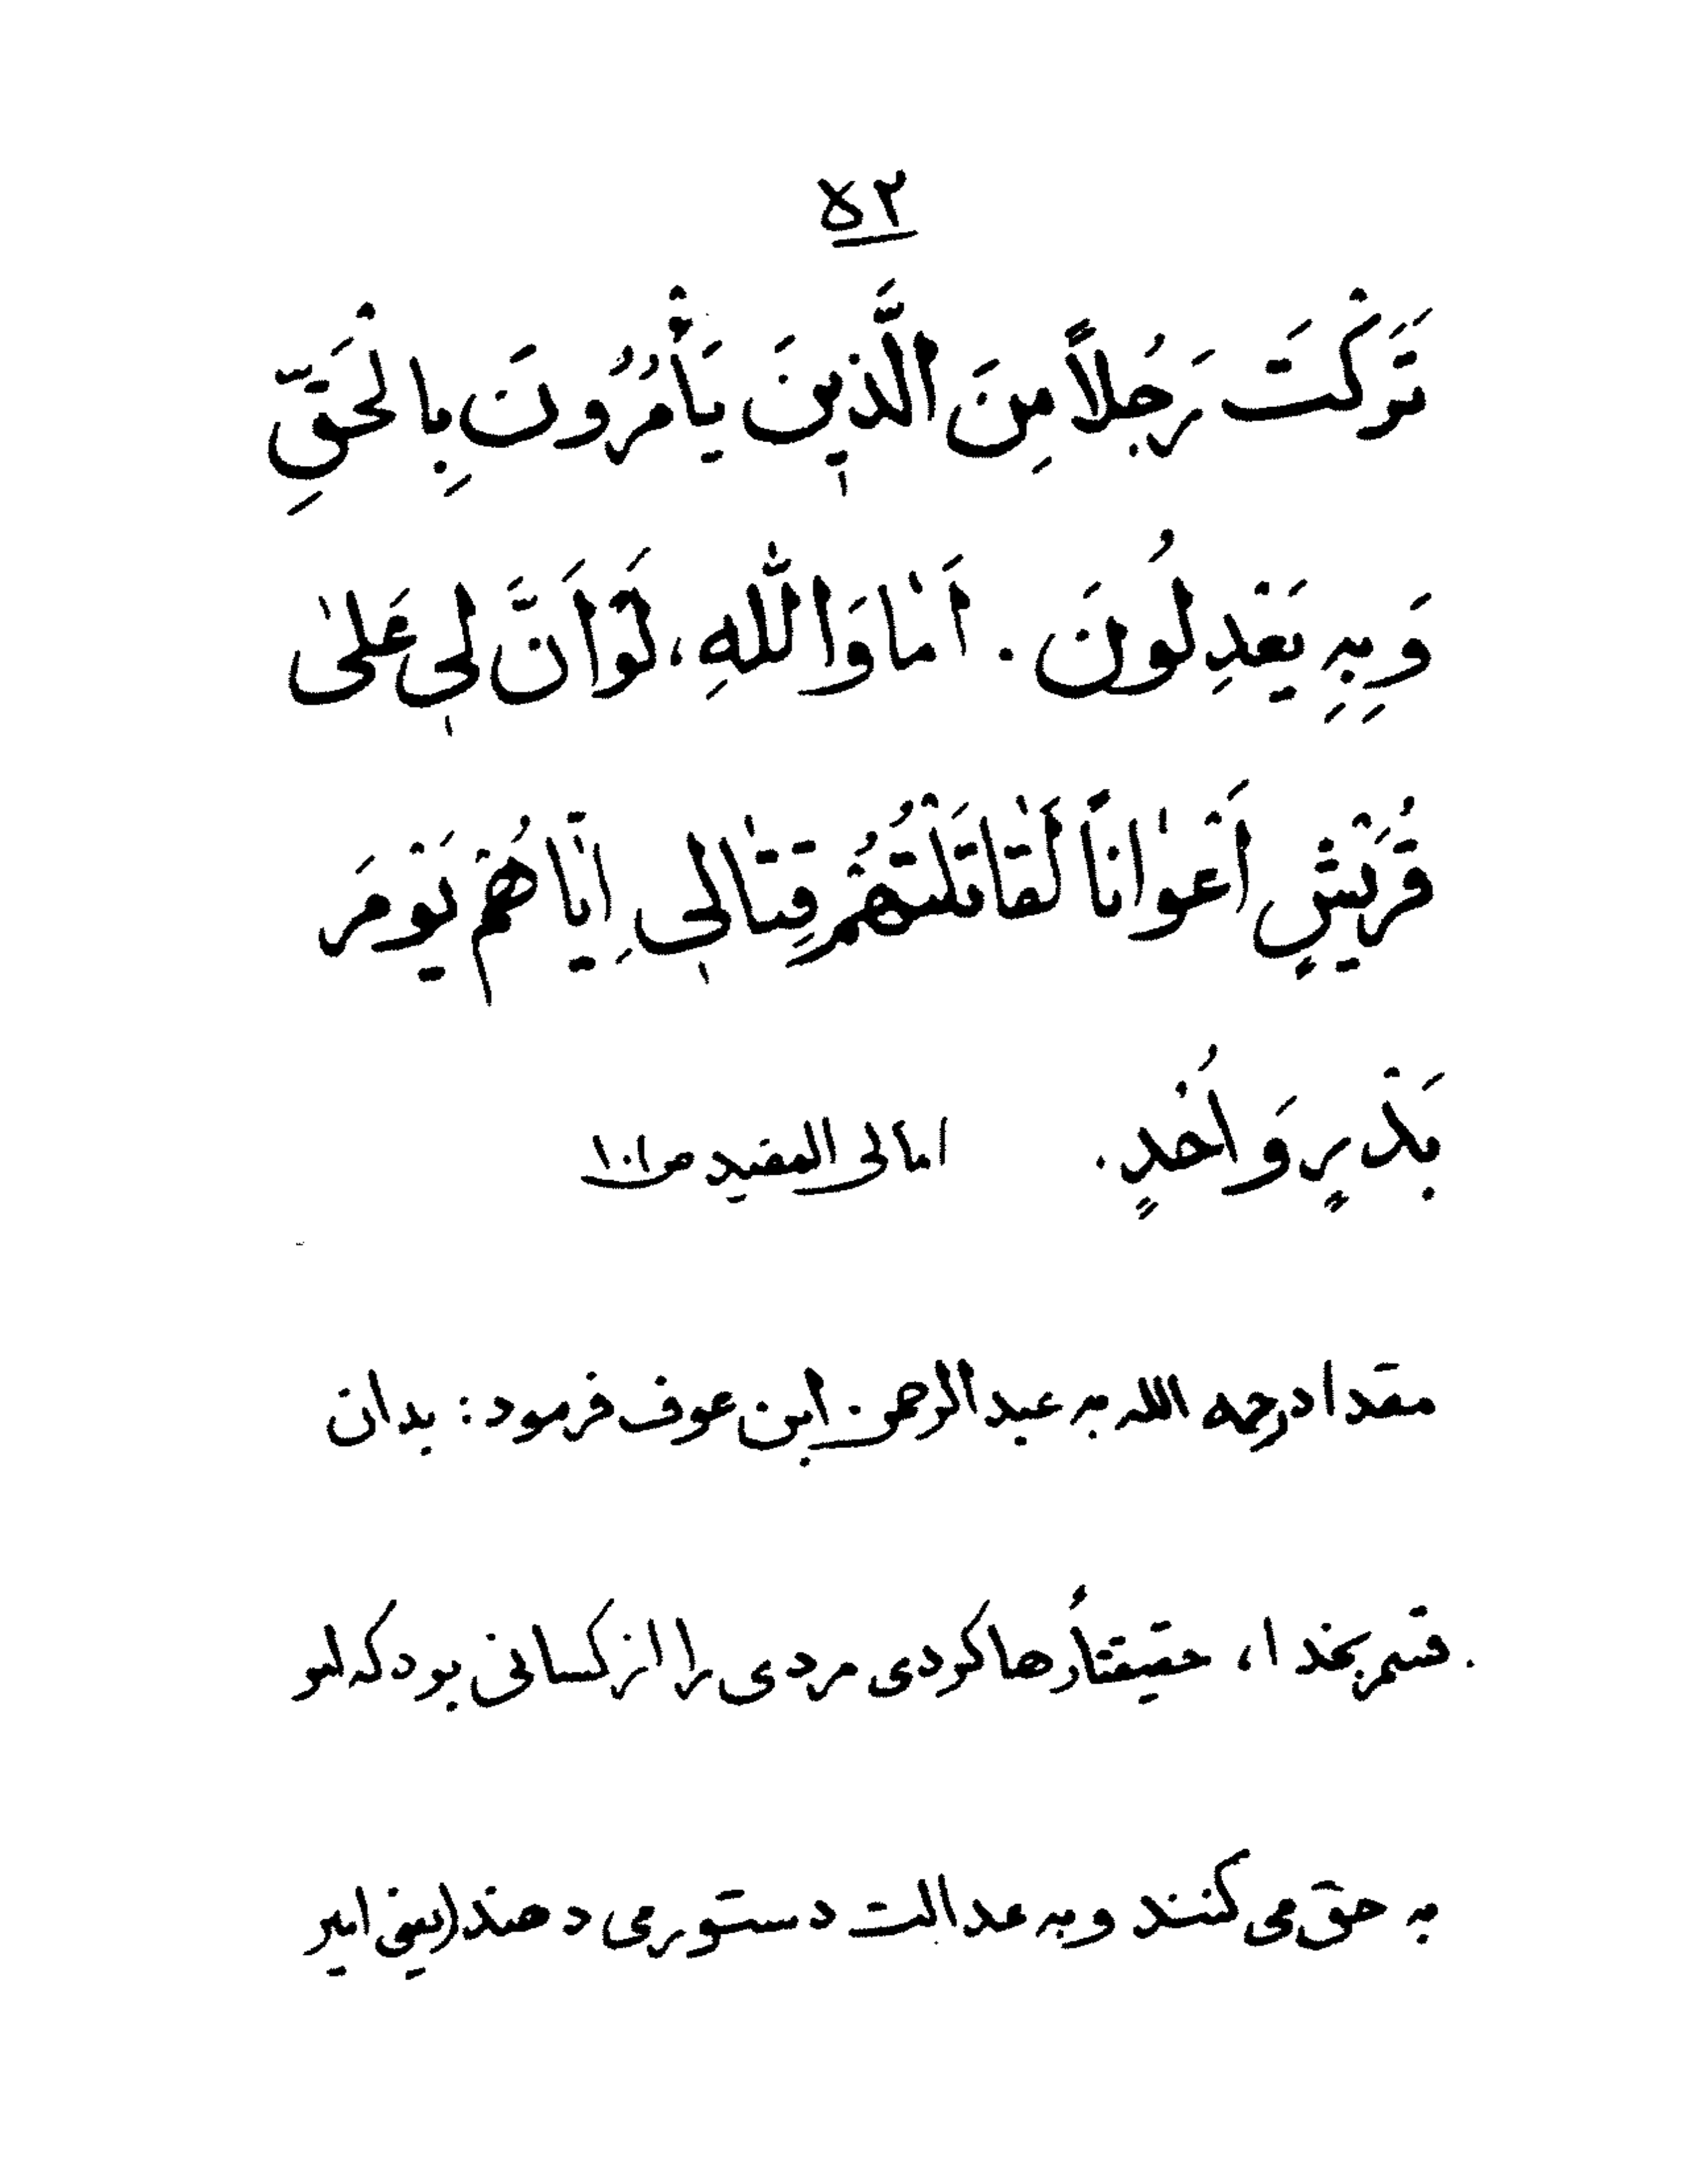 ۵۲
تَرَكْتَ رَجُلاً مِنَ الَّذينَ يَأْمُرُونَ بِالْحَقِّ
وَ بِهِ يَعْدِلُونَ . اَمٰا وَاللّٰهِ، لَوْ اَنَّ لي عَلىٰ
قُرَيْشٍ اَعْوٰاناً لَقٰاتَلْتُهُمْ قِتٰالي اِيّٰاهُمْ يَوْمَ
بَدْرٍ وَ اُحُدٍ . امالی المفید ص۱۰۱
مقداد رحمه الله به عبدالرحمن ابن عوف فرمود: بدان
. قسم بخدا، حقیقتاً رها کردی مردی را از کسانی بود که امر
به حق می کنند و به عدالت دستور می دهند (یعنی امیر